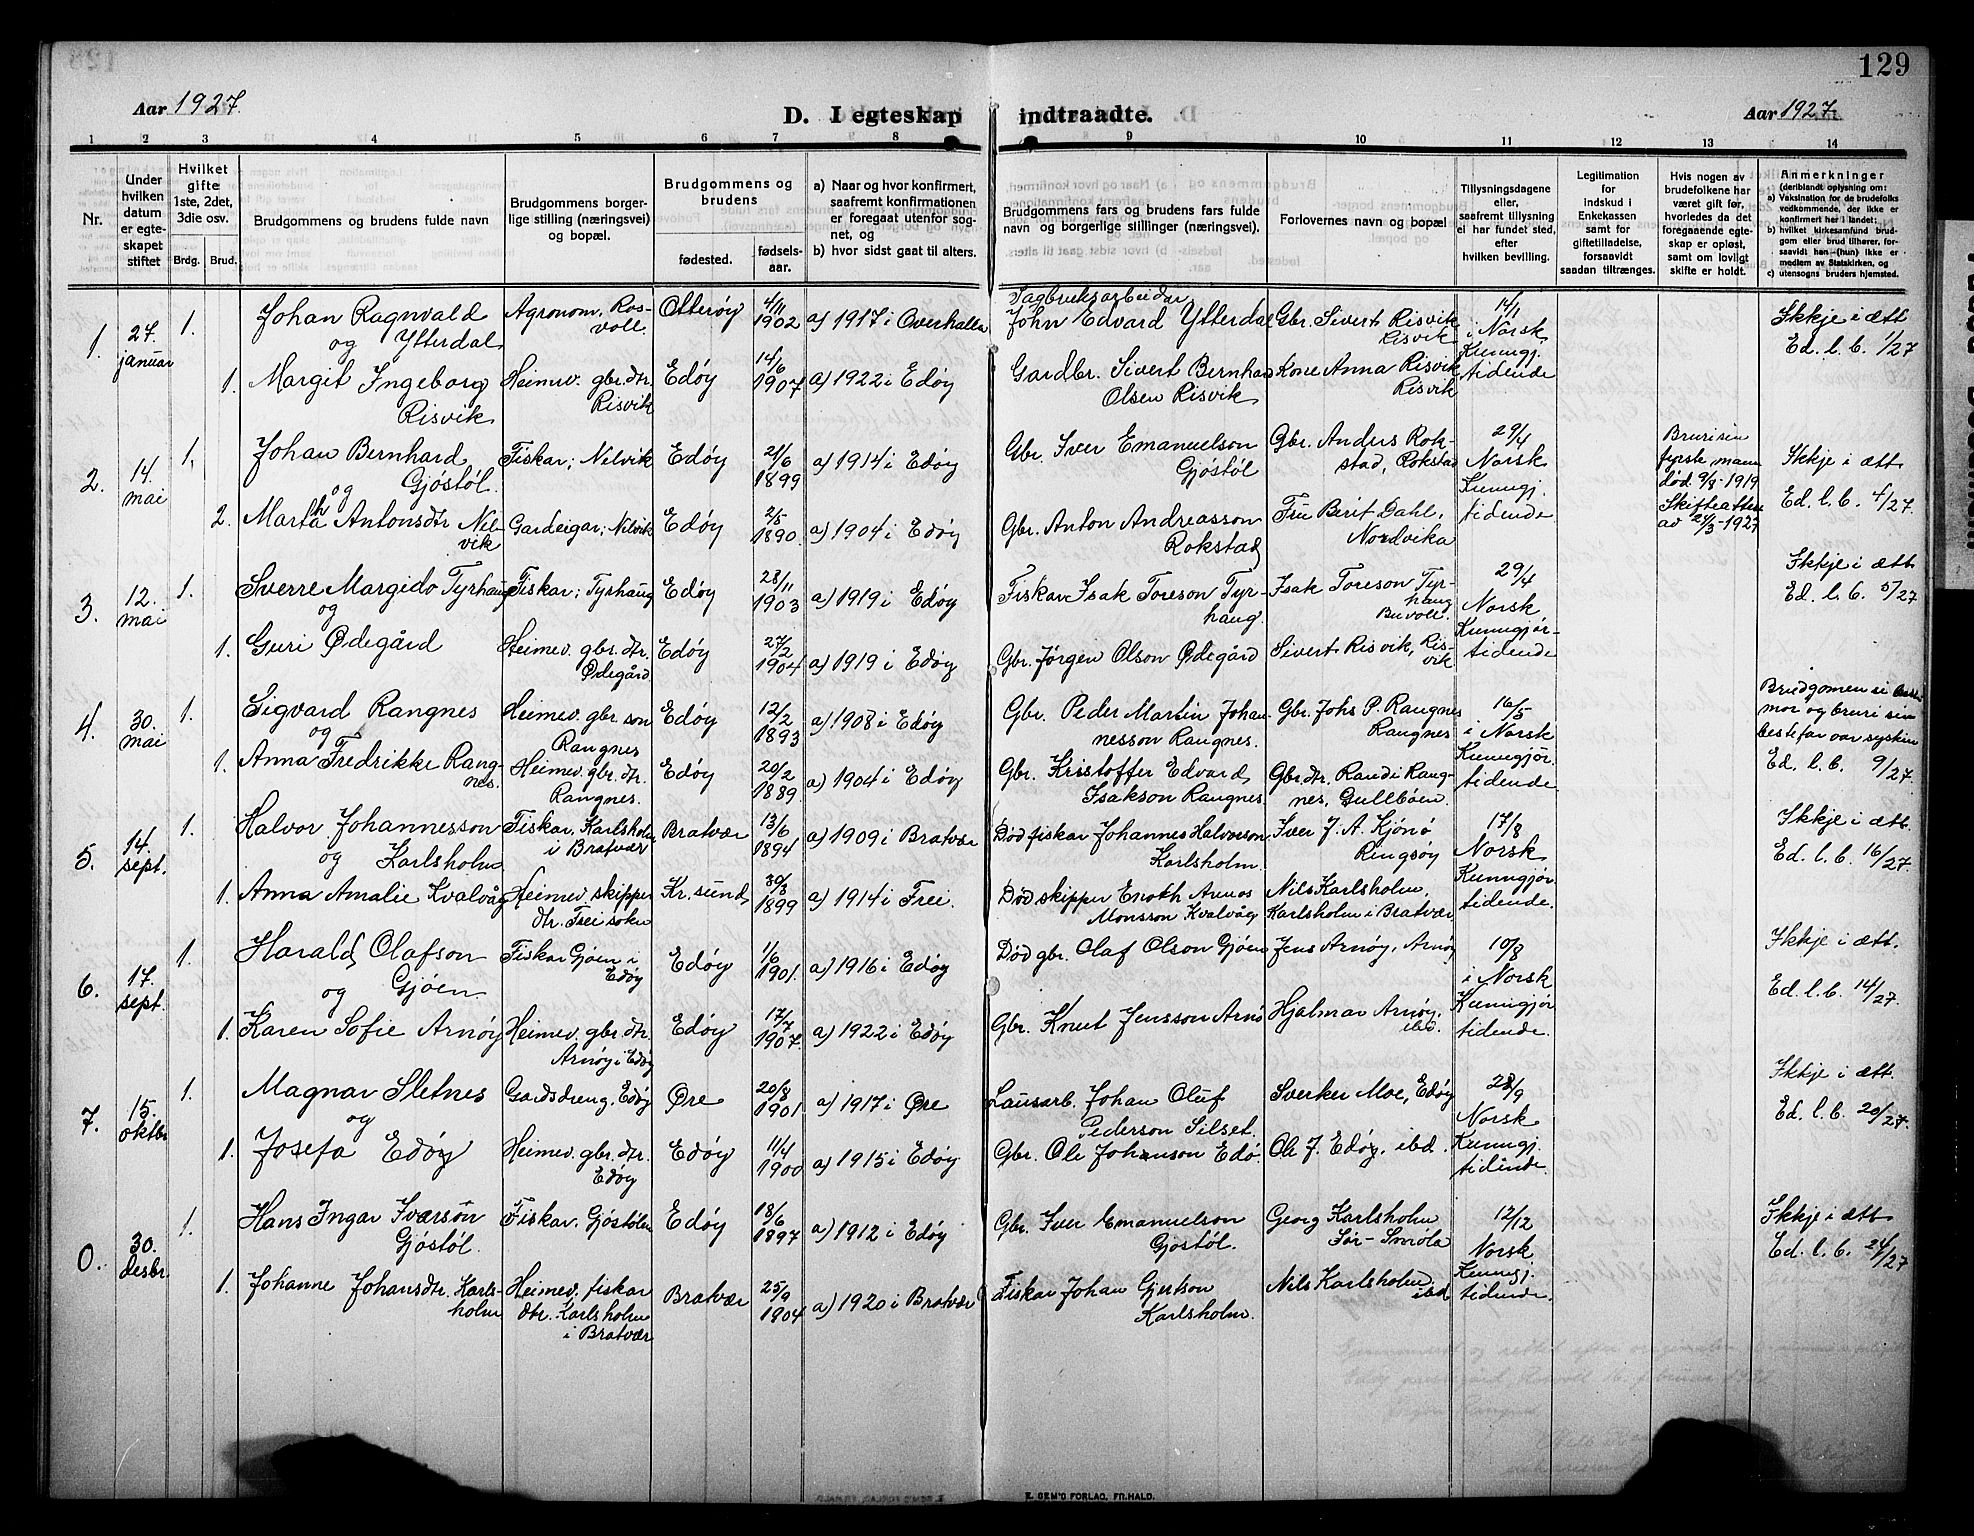 129
Aar 1927.
D. I egteskap indtraadte.
Aar 1927.
1 2 3 4 5 6 7 8 9 10 11 12 13 14
Nr.
Under hvilken datum er egteskapet stiftet
Hvilket gifte 1ste, 2det, 3die osv.
Brdg. Brud.
Brudgommens og brudens fulde navn
Brudgommens borgerlige stilling (næringsvei) og bopæl.
Brudgommens og brudens
fødested.
fødselsaar.
a) Naar og hvor konfirmert, saafremt konfirmationen er foregaat utenfor sognet, og
b) hvor sidst gaat til alters.
Brudgommens fars og brudens fars fulde navn og borgerlige stillinger (næringsvei).
Forlovernes navn og bopæl
Tillysningsdagene eller, saafremt tillysning ei har fundet sted, efter hvilken bevilling.
Legitimation for Indskud i Enkekassen samt for giftetilladelse, forsaavidt saadan tiltrænges.
Hvis nogen av brudefolkene har været gift før, hvorledes da det foregaaende egteskap er opløst, samt om lovligt skifte er holdt.
Anmerkninger (deriblandt oplysning om:
a) Vaksination for de brudefolks vedkommende, der ikke er konfirmert her i landet;
b) hvilket kirkesamfund brudgom eller brud tilhører, forsaavidt han (hun) ikke er medlem av Statskirken, og
c) utensogns bruders hjemsted.
1. 27. januar 1. Johan Ragnvald og Ytterdal Agronom, Rosvoll. Otterøy 4/11 1902 a) 1917 i Overhalla Sagbruksarbeidar John Edvard Ytterdal Gbr. Sivert Risvik Risvik 14/1 i Norsk Kunngj. tidende Ikkje i ætt Ed. l. b. 1/27
1. Margit Ingeborg Risvik Heimev. gbr. dtr. Risvik Edøy 14/6 1907 a) 1922 i Edøy Gardbr. Sivert Bernhard Olsen Risvik Kone Anna Risvik Risvik
2. 14. mai 1. Johan Bernhard og Gjøstøl. Fiskar; Nilvik Edøy 21/6 1899 a) 1914 i Edøy Gbr. Iver Emanuelson Gjøstøl Gbr. Anders Rokstad, Rokstad 29/4 Norsk Kunngj. tidende Bruri sin fyrste mann død 9/8-1919 Skifteattest av 21/3-1927 Ikkje i ætt Ed. l. b. 4/27.
2. Martha Antonsdtr Nilvik Gardeigar; Nilvik Edøy 2/5 1890. a) 1904 i Edøy Gbr. Anton Andreasson Rokstad Fru Berit Dahl, Nordvika
3. 12. mai 1. Sverre Margido Tyrhaug og Fiskar; Tyrhaug Edøy 28/11 1903 a) 1919 i Edøy Fiskar Isak Toreson Tyrhaug. Isak Toreson Tyrhaug Buvoll. 29/4 Norsk Kunngjørtidende Ikkje i ætt Ed. l. b. 5/27
1. Guri Ødegård Heimev. gbr. dtr. Ødegård Edøy 27/2 1904 a) 1919 i Edøy Gbr. Jørgen Olson Ødegård Sivert Risvik, Risvik
4. 30. mai 1. Sigvard Rangnes og Heimev. gbr son Rangnes Edøy 12/2 1893 a) 1908 i Edøy Gbr. Peder Martin Johannesson Rangnes. Gbr. Johs P. Rangnes Rangnes 16/5 i Norsk Kunngjør. tidende Brudgomen si mor og bruri sin bestefar var syskin Ed. l. b. 9/27.
1. Anna Fredrikke Rangnes. Heimev. gbr. dtr. Rangnes. Edøy 20/2 1889. a) 1904 i Edøy Gbr. Kristoffer Edvard Isakson Rangnes Gbr. dtr. Randi Rangnes, Gullbøen.
5. 14. sept. 1. Halvor Johannesson og Karlsholm Fiskar, Karlsholm i Bratvær Bratvær 13/6 1894 a) 1909 i Bratvær Død fiskar Johannes Halvorson Karlsholm. Iver J. A. Kjønø Ringsøy 17/8 Norsk Kunngjør tidende. Ikkje i ætt. Ed. l. b. 16/27.
1. Anna Amalie Kvalvåg Heimev. skipper dtr. Frei sokn Kr. sund 30/8 1899 a) 1914 i Frei. Død skipper Enoth Arenos Monsson Kvalvåg Nils Karlsholm, Karlsholm i Bratvær
6. 17. sept. 1. Harald Olafson og Gjøen. Fiskar Gjøen i Edøy Edøy 1/6 1901. a) 1916 i Edøy Død gbr. Olaf Olson Gjøen Jens Arnøy, Arnøy 10/8 i Norsk Kunngjør tidende. Ikkje i ætt. Ed. l. b. 14/27.
1. Karen Sofie Arnøy Heimev. gbr. dtr. Arnøy i Edøy Edøy 17/7 1907. a) 1922 i Edøy Gbr. Knut Jensson Arnø Hjalmar Arnøy, ibd.
7. 15. oktbr 1. Magnar Sletnes og Gardsdreng, Edøy Øre 20/8 1901 a) 1917 i Øre Lausarb. Johan Oluf Pederson Silset. Sverker Moe, Edøy 28/9 Norsk Kunngj. tidende. Ikkje i ætt. Ed. l. b. 20/27.
1. Josefa Edøy Heimev. gbr. dtr. Edøy Edøy 11/4 1900 a) 1915 i Edøy Gbr. Ole Johanson Edø. Ole J. Edøy, ibd.
0. 30. desbr. 1. Hans Ingar Ivarson Gjøstøl. Fiskar, Gjøstølen Edøy 18/6 1897 a) 1912 i Edøy Gbr. Iver Emanuelson Gjøstøl. Georg Karlsholm Sør-Smøla 12/12 Norsk Kunngj. tidende. Ikkje i ætt Ed. l. b. 24/27
1. Johanne Johansdtr. Karlsholm Heimev. fiskar dtr. Karlsholm i Bratvær Bratvær 25/9 1904 a) 1920 i Bratvær Fiskar Johan Gjertson Karlsholm. Nils Karlsholm, ibd
E. SEM'S FORLAG, FR.HALD.